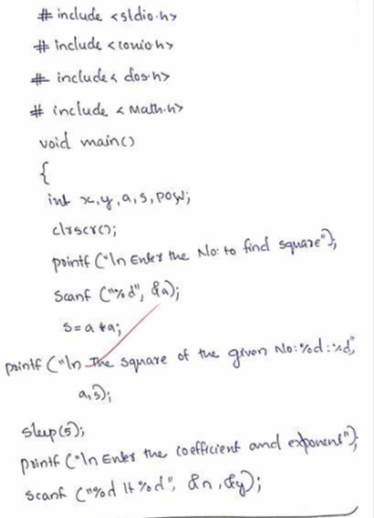 # include <stdio.h>
# include <conio.h>
# include< dos.h>
# include < Math.h>
void main()
{
int x,y,a,s,pow;
clrscr();
printf ("\n Enter the No: to find square");
scanf ("%d", &a);
s=a*a;
printf ("\n The square of the given No:%d:%d",
a,s);
sleep(5);
printf ("\n Enter the coefficient and exponent");
scanf ("%d \t %d", &n, &y);